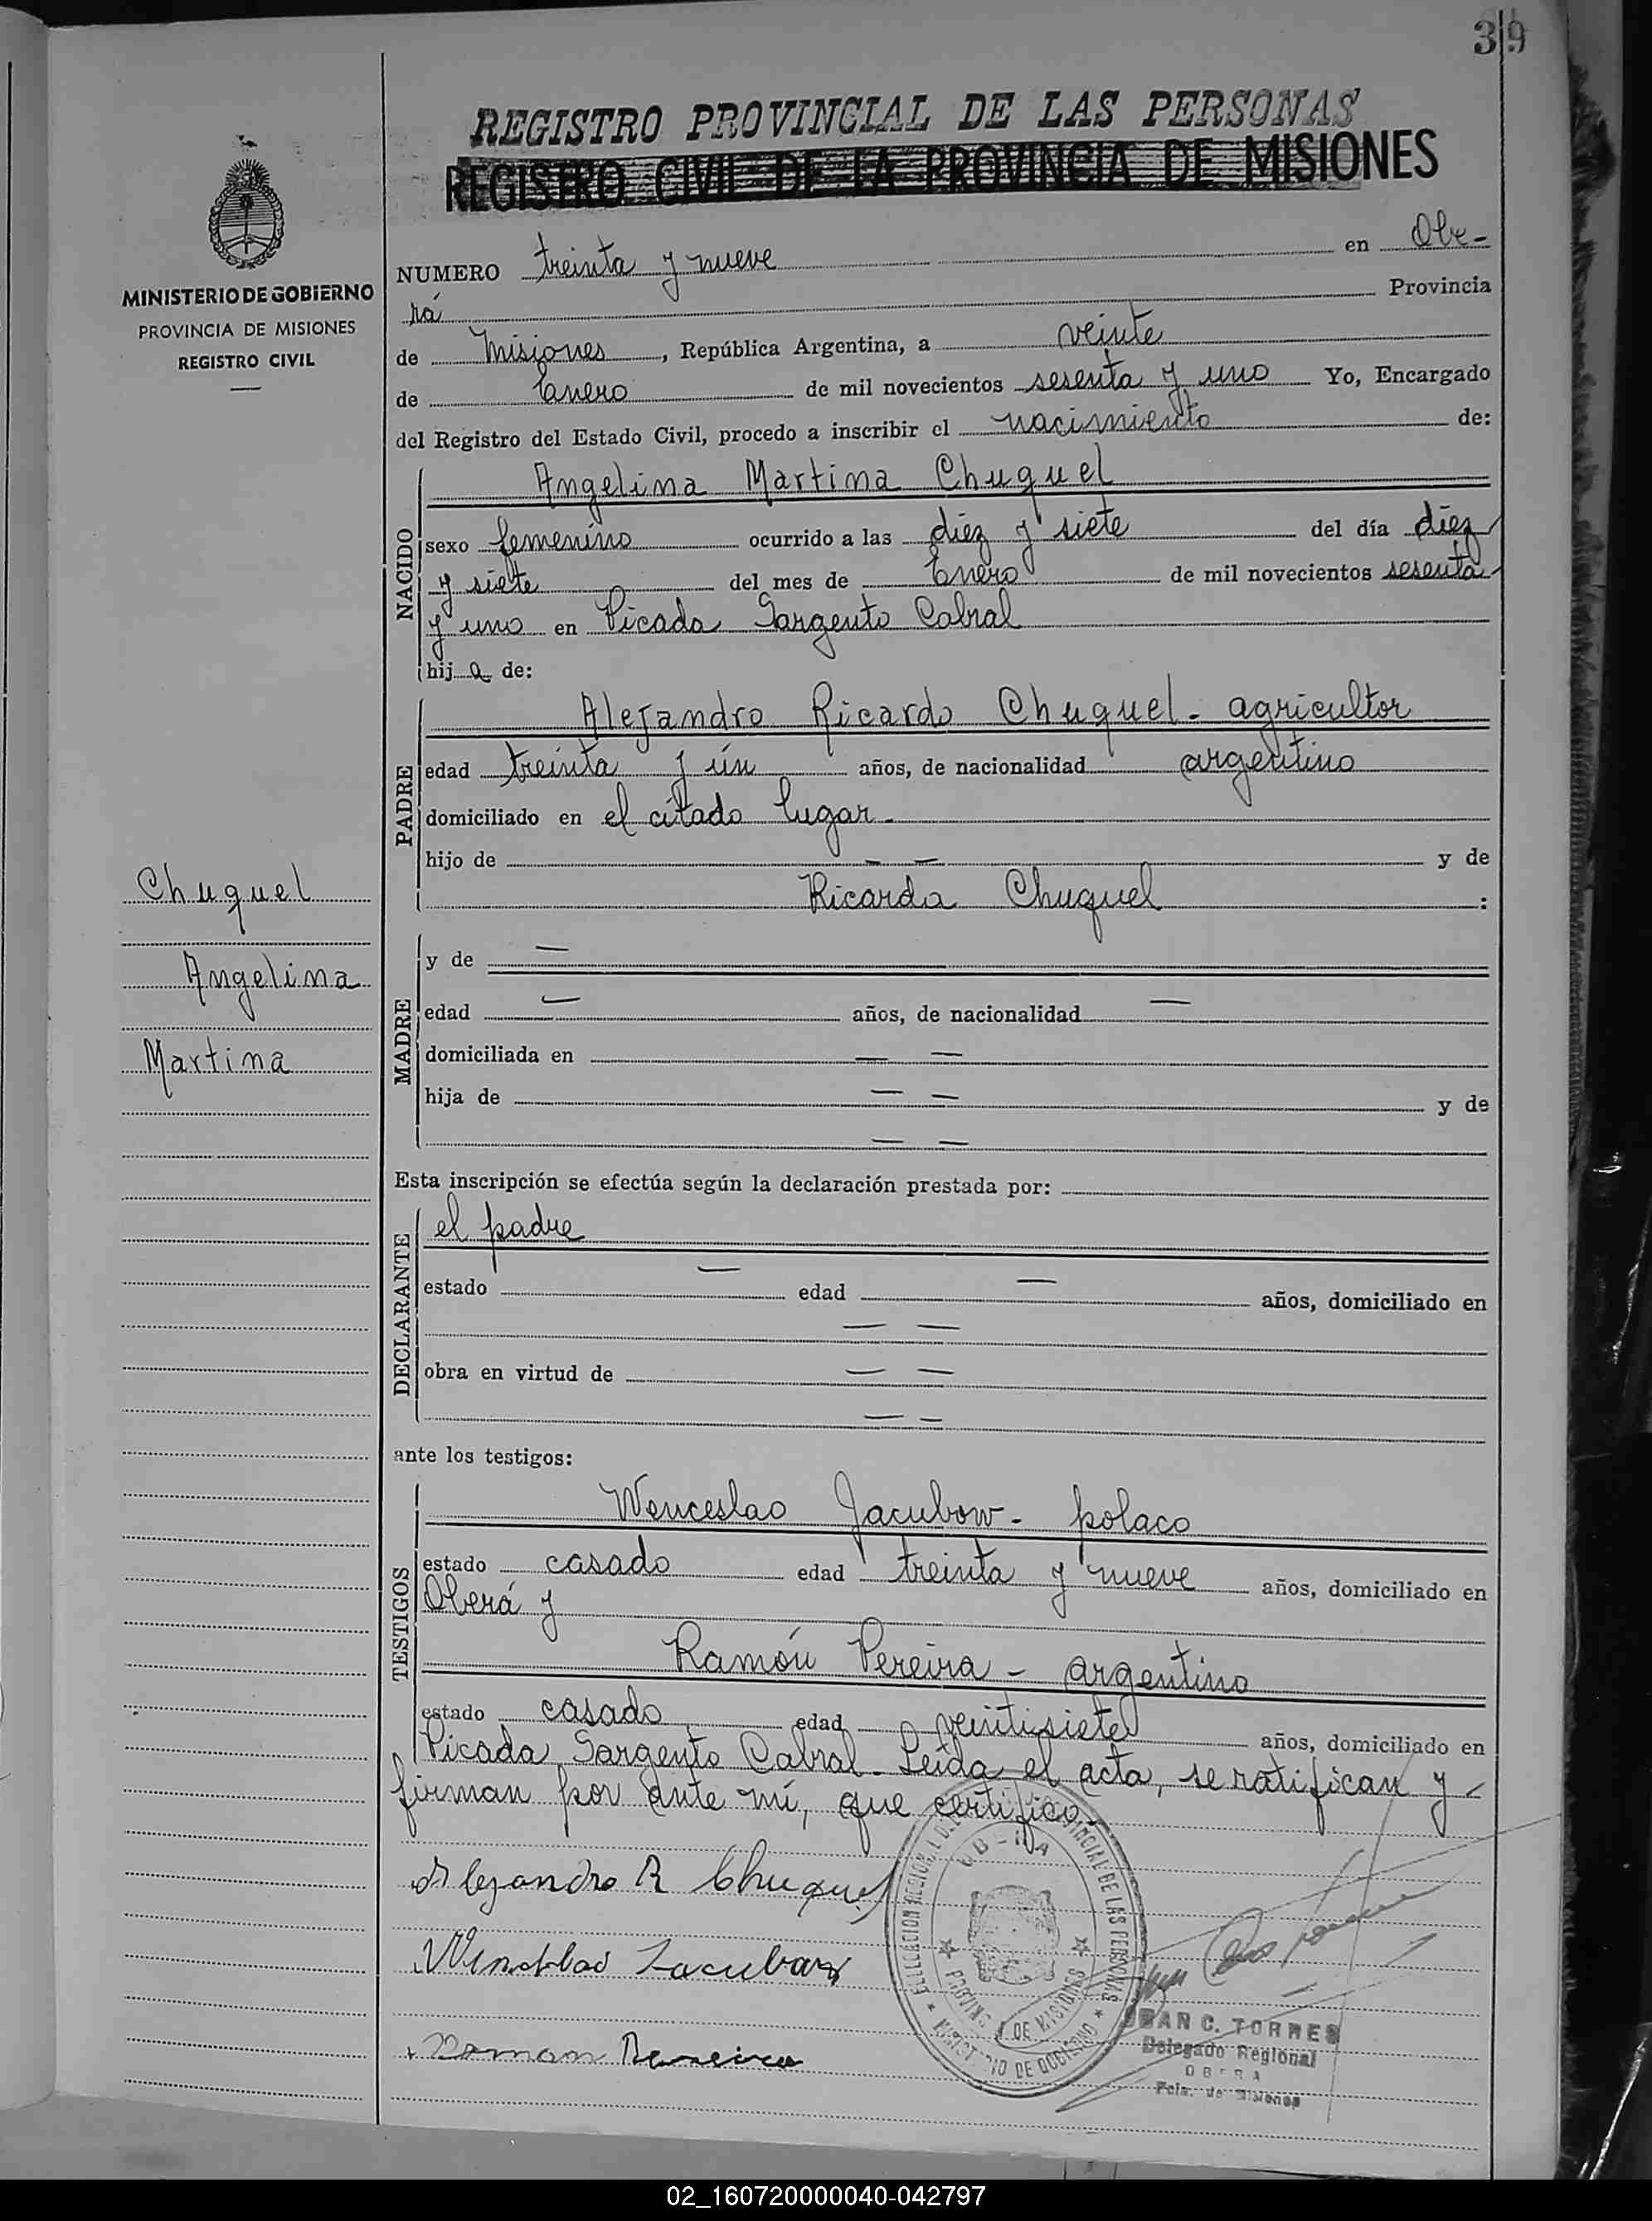 39
REGISTRO PROVINCIAL DE LAS PERSONAS
REGISTRO CIVIL DE LA PROVINCIA DE MISIONES
MINISTERIO DE GOBIERNO
PROVINCIA DE MISIONES
REGISTRO CIVIL
NUMERO treinta y nueve en Obe-
rá Provincia
de Misiones, República Argentina, a veinte
de Enero de mil novecientos sesenta y uno Yo, Encargado
del Registro del Estado Civil, procedo a inscribir el nacimiento de:
NACIDO
Angelina Martina Chuquel
sexo femenino ocurrido a las diez y siete del día diez
y siete del mes de Enero de mil novecientos sesenta
y uno en Picada Sargento Cabral
hija de:
PADRE
Alejandro Ricardo Chuquel - agricultor
edad treinta y ún años, de nacionalidad argentino
domiciliado en el citado lugar -
hijo de — — y de
Ricarda Chuquel :
Chuquel
Angelina
Martina
MADRE
y de —
edad — años, de nacionalidad —
domiciliada en — —
hija de — — y de
— —
Esta inscripción se efectúa según la declaración prestada por:
DECLARANTE
el padre
estado — edad — años, domiciliado en
— —
obra en virtud de — —
— —
ante los testigos:
TESTIGOS
Wenceslao Jacubow - polaco
estado casado edad treinta y nueve años, domiciliado en
Oberá y
Ramón Pereira - argentino
estado casado edad veintisiete años, domiciliado en
Picada Sargento Cabral - Leída el acta, se ratifican y -
firman por ante mí, que certifico.
Alejandro R Chuquel
Ramon Pereira
PROVINCIAL DE LAS PERSONAS
PROVINCIA DE MISIONES
MINISTERIO DE GOBIERNO
JUAN C. TORRES
Delegado Regional
OBERA
Pcia. de Misiones
02_160720000040-042797